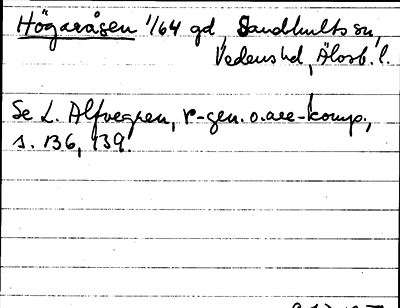 Högaråsen 1/64 gd, Sandhults sn,
Vedens hd, Älvsb. l.
Se L. Alfvegren, r-gen. o. are-komp.,
s. 136, 139.